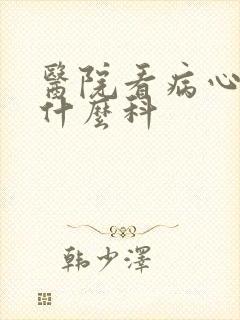 醫院看病心
什麼科
韩少澤